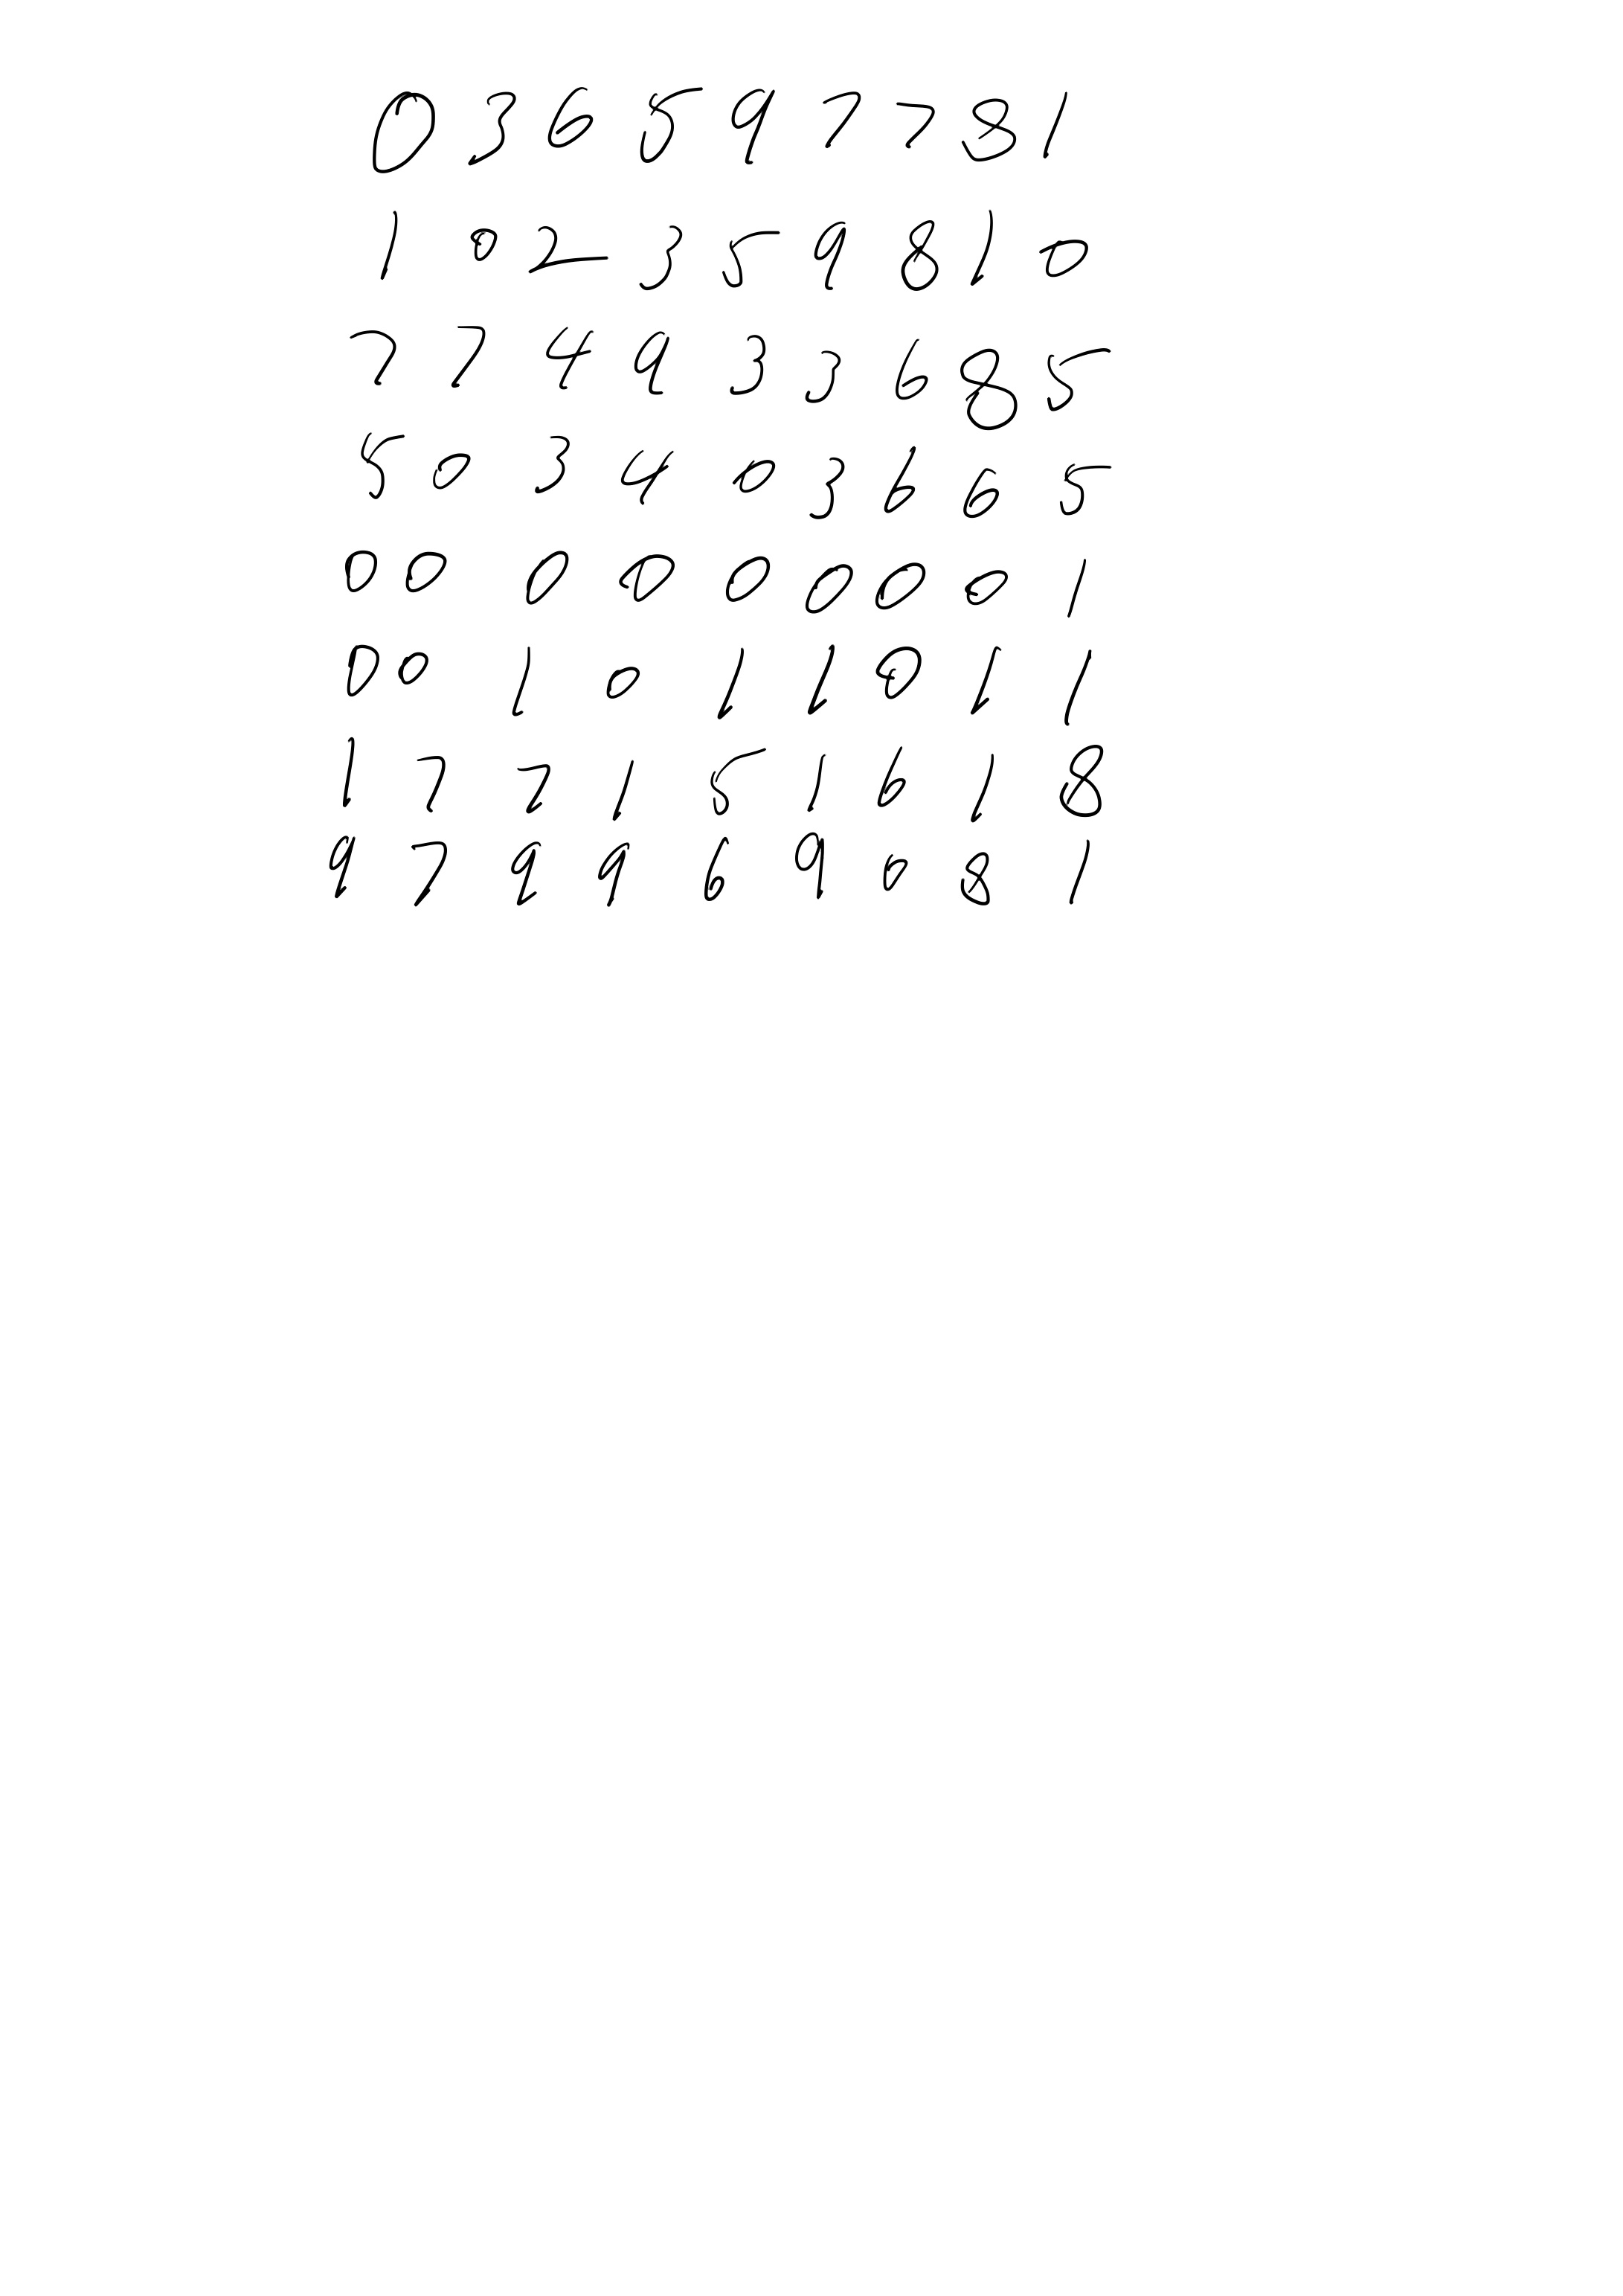 0 3 6 5 9 7 7 8 1
1 0 2 3 5 9 8 1 0
7 7 4 9 3 3 6 8 5
5 0 3 4 0 3 6 6 5
0 0 0 0 0 0 0 0 1
0 0 1 0 1 1 0 1 1
1 7 7 1 5 1 6 1 8
9 7 9 9 6 9 0 8 1